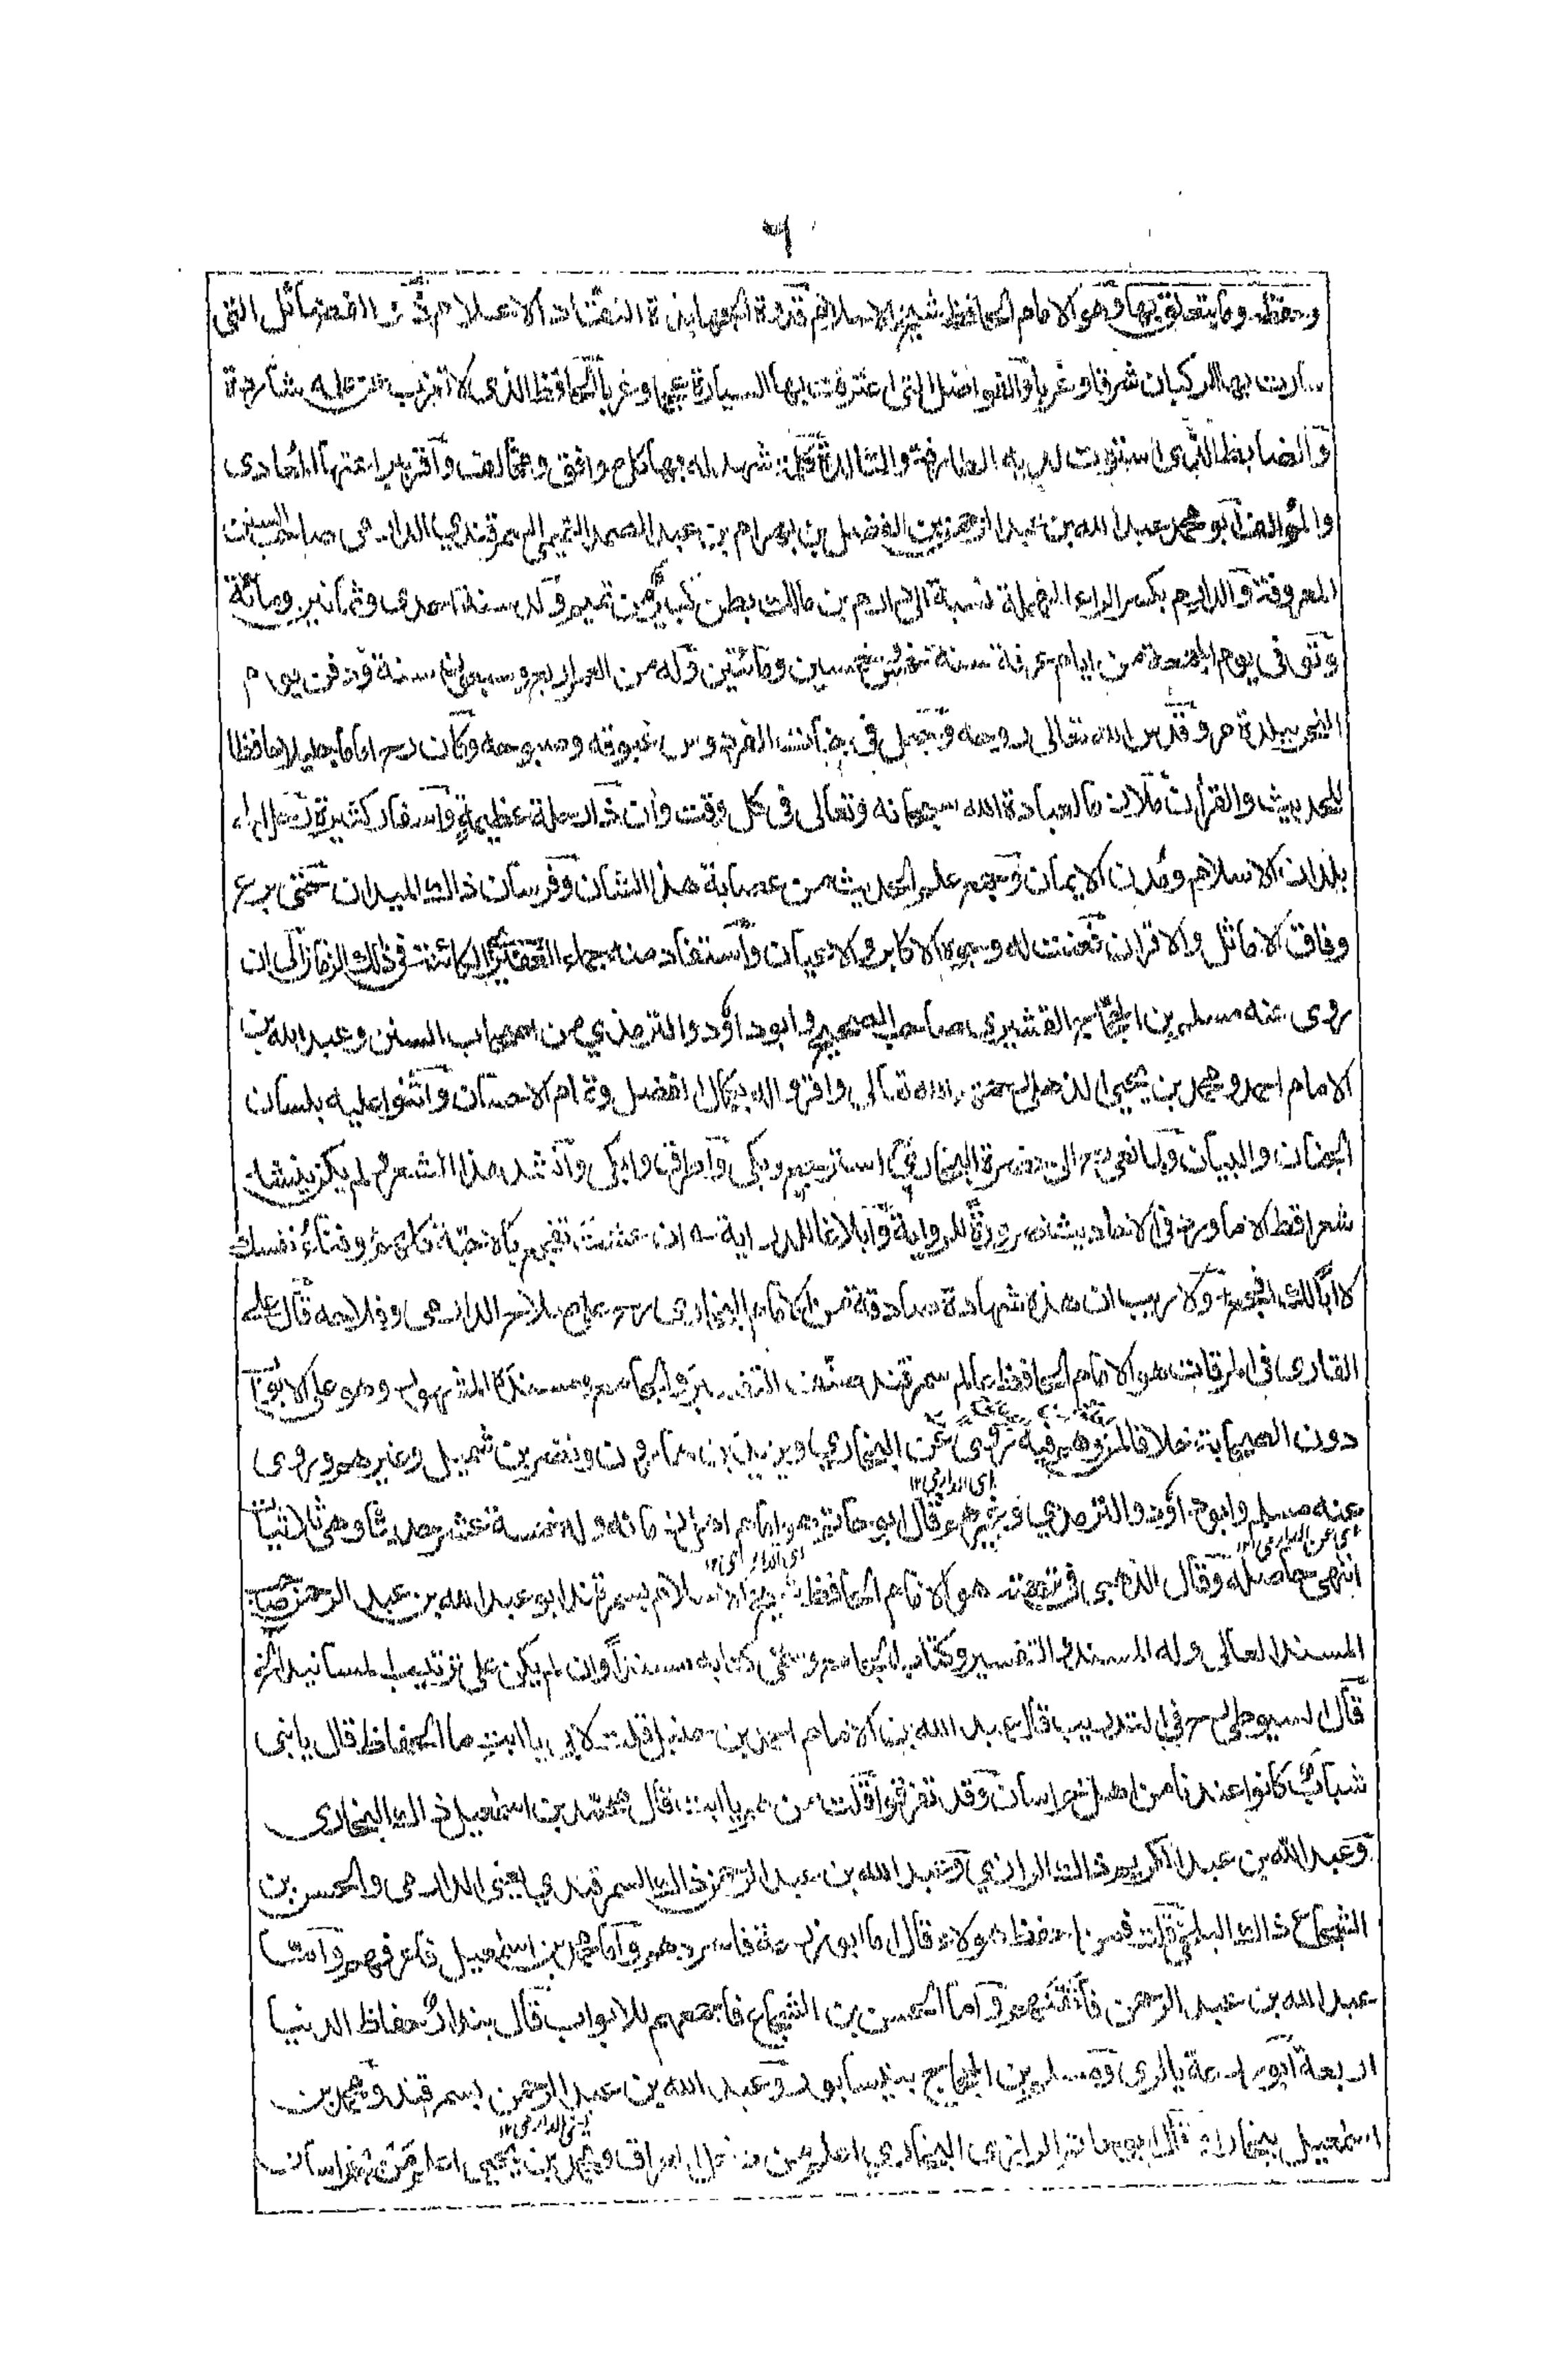 ٦
وحفظه وما يتعلق بها وهو الامام الحافظ شيخ الاسلام قدوة الجهابذة الثقات الاعلام ذو الفضائل التى
سارت بها الركبان شرقا وغربا والفواضل التى اعترفت بها السيارة عجما وعربا الحافظ الذى لا تعزب عن علمه شاردة
والضابط الذى استوت لديه الطارفة والتالدة شهد له بها كل موافق ومخالف واقر ببراعته المعادى
والمؤالف ابو محمد عبد الله بن عبد الرحمن بن الفضل بن بهرام بن عبد الصمد التميمى السمرقندي الدارمى صاحب السنن
المعروفة والدارم بكسر الراء المهملة نسبة الى دارم بن مالك بطن كبير من تميم ولد سنة احدى وثمانين ومائة
وتوفى يوم الجمعة من ايام عرفة سنة خمس وخمسين ومائتين وله من العمر اربع وسبعون سنة ودفن يوم
النحر ببلدة مرو قدس الله تعالى روحه وجعل فى جنات الفردوس غبوقه وصبوحه وكان رح اماما جليلا حافظا
للحديث والقرآن ملازما لعبادة الله سبحانه وتعالى فى كل وقت وان ذا رحلة عظيمة واسفار كثيرة
بلدان الاسلام ومدن الايمان وجمع علم الحديث من عصابة هذا الشان وفرسان ذالك الميدان حتى برع
وفاق الاماثل والاقران فعنت له وجوه الاكابر والاعيان واستفاد منه جماء الغفير الكائنة فى ذلك الزمان الى ان
روى عنه مسلم بن الحجاج القشيرى صاحب الصحيح وابو داؤد والترمذي من اصحاب السنن وعبد الله بن
الامام احمد ومحمد بن يحيى الذهلى رحمهم الله تعالى واقروا له بكمال الفضل وتمام الاحسان واثنوا عليه بلسان
الجنان والبيان ولما نعى رح الى حضرة البخاري استرجع وبكى واطرق وابكى وانشد هذا الشعر ولم يكن ينشد
شعرا قط الا ما ورد فى الاحاديث ضرورة للرواية وابلاغا للدراية ـه ان عشت تفجع بالاحبة كلهم وفناء نفسك
لا ابالك افجع ولا ريب ان هذه شهادة صادقة من الامام البخارى رح على صلاح الدارمى وفلاحه قال على
القارى فى المرقات هو الامام الحافظ عالم سمرقند صنف التفسير والجامع ومسنده المشهور وهو على الابواب
دون الصحابة خلافا لمن وهم فيه روى عن البخاري ويزيد بن هارون ونضر بن شميل وغيرهم وروى
اى الدارمى ١٢
عنه مسلم وابو داؤد والترمذي وغيرهم وقال ابو حاتم هو امام اهل زمانه وله خمسة عشر حديثا وهى ثلاثيات
اى عن الدارمى ١٢
اى الدارمى ١٢
انتهى حاصله وقال الذهبى فى هو الامام الحافظ شيخ الاسلام بسمرقند ابو عبد الله بن عبد الرحمن صاحب
المسند العالى وله المسند والتفسير وكتاب الجامع وسمى كتابه مسندا وان لم يكن على ترتيب المسانيد
قال السيوطى رح فى التدريب قال عبد الله بن الامام احمد بن حنبل قلت لابى يا ابت ما الحفاظ قال يا بنى
شباب كانوا عندنا من اهل خراسان وقد تفرقوا قلت من هم يا ابت قال محمد بن اسمعيل ذالك البخارى
وعبد الله بن عبد الكريم ذالك الرازي وعبد الله بن عبد الرحمن ذالك السمرقندي يعنى الدارمى والحسن بن
الشجاع ذالك البلخي قلت فمن احفظ هولاء قال اما ابو زرعة فاسردهم واما محمد بن اسمعيل فاعرفهم واما
عبد الله بن عبد الرحمن فاتقنهم واما الحسن بن الشجاع فاجمعهم للابواب قال بندار حفاظ الدنيا
اربعة ابو زرعة بالرى ومسلم بن الحجاج بنيسابور وعبد الله بن عبد الرحمن بسمرقند ومحمد بن
يعنى الدارمى ١٢
اسمعيل ببخارا قال ابو حاتم الرازى البخاري اعلم من دخل العراق ومحمد بن يحيى اعلم من بخراسان